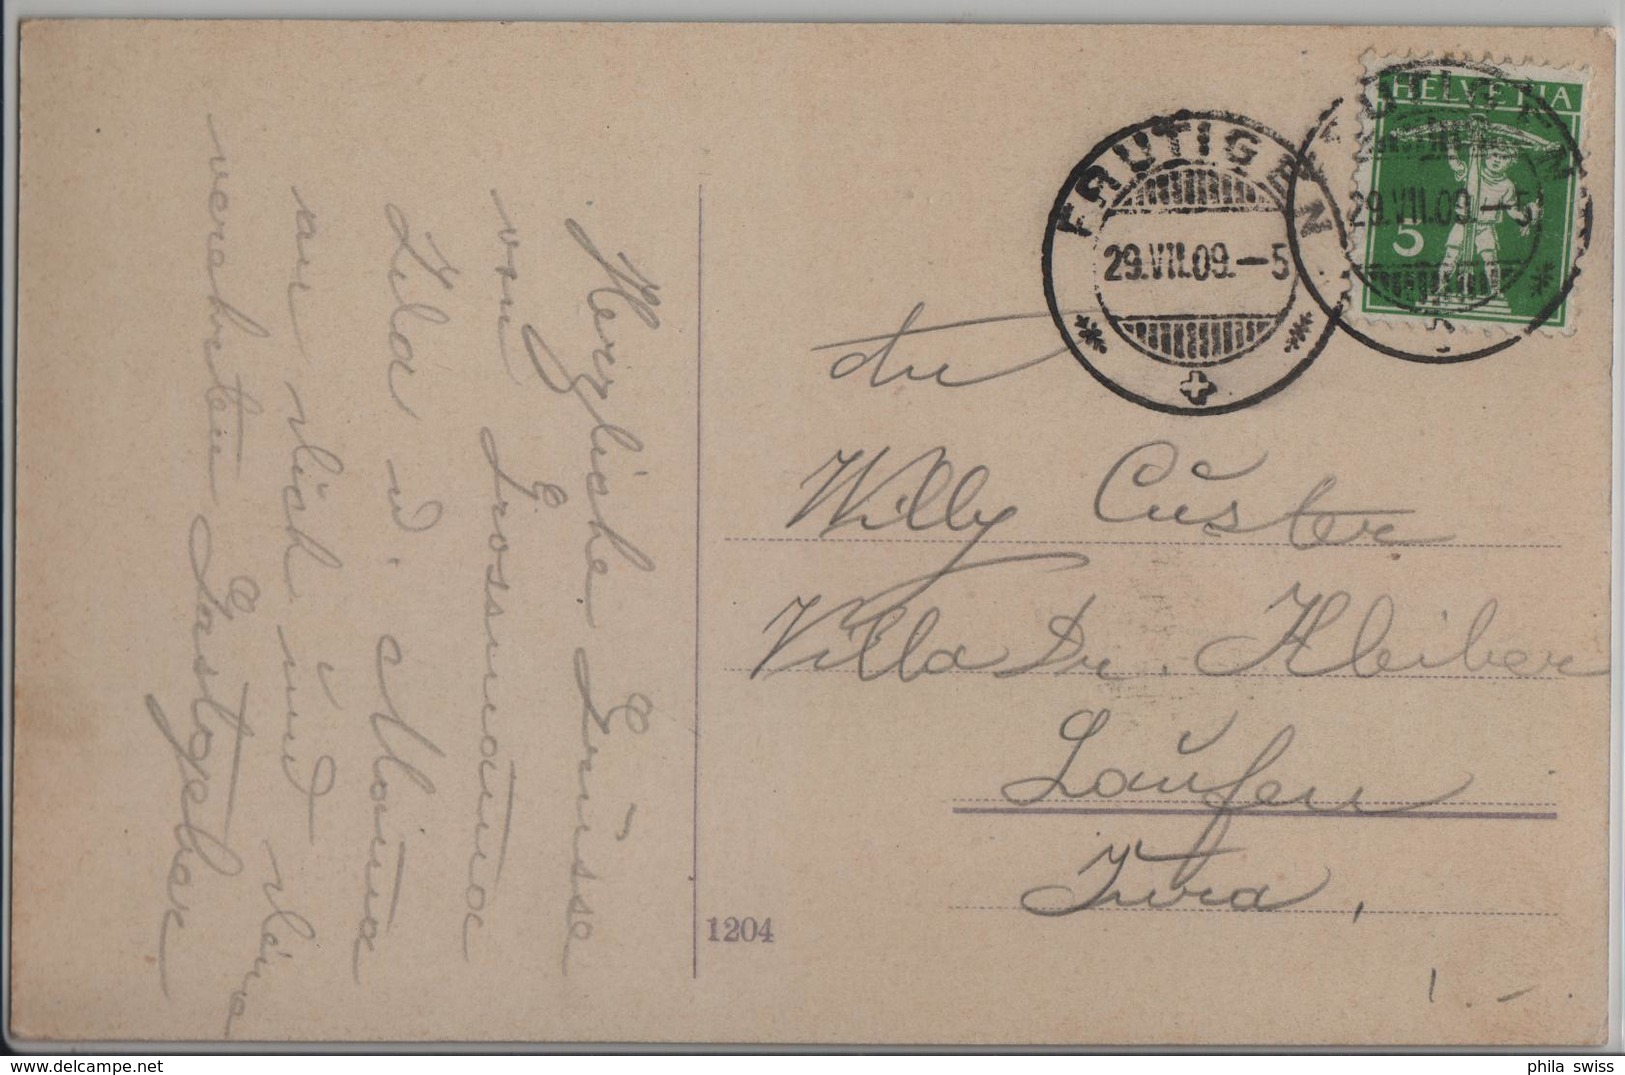 Herzliche Grüsse
von Grossmama
Lila u. Mama
an dich und deine
verehrten Gastgeber
HELVETIA
5
FRUTIGEN
29.VII.09.-5
FRUTIGEN
29.VII.09.-5
An
Willy Custer
Villa Dr. Kleiber
Laufen
Jura,
1204
1.-
phila swiss
delcampe.net